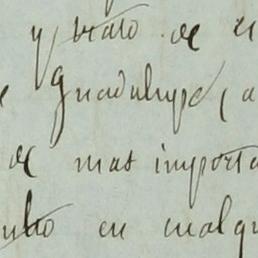 y trato de
Guadalupe,
de mas importa
en cualqu